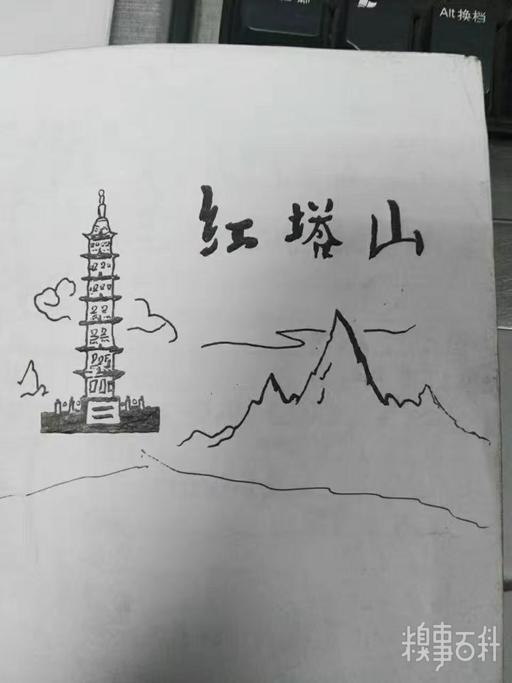 Alt 换档
红塔山
糗事百科